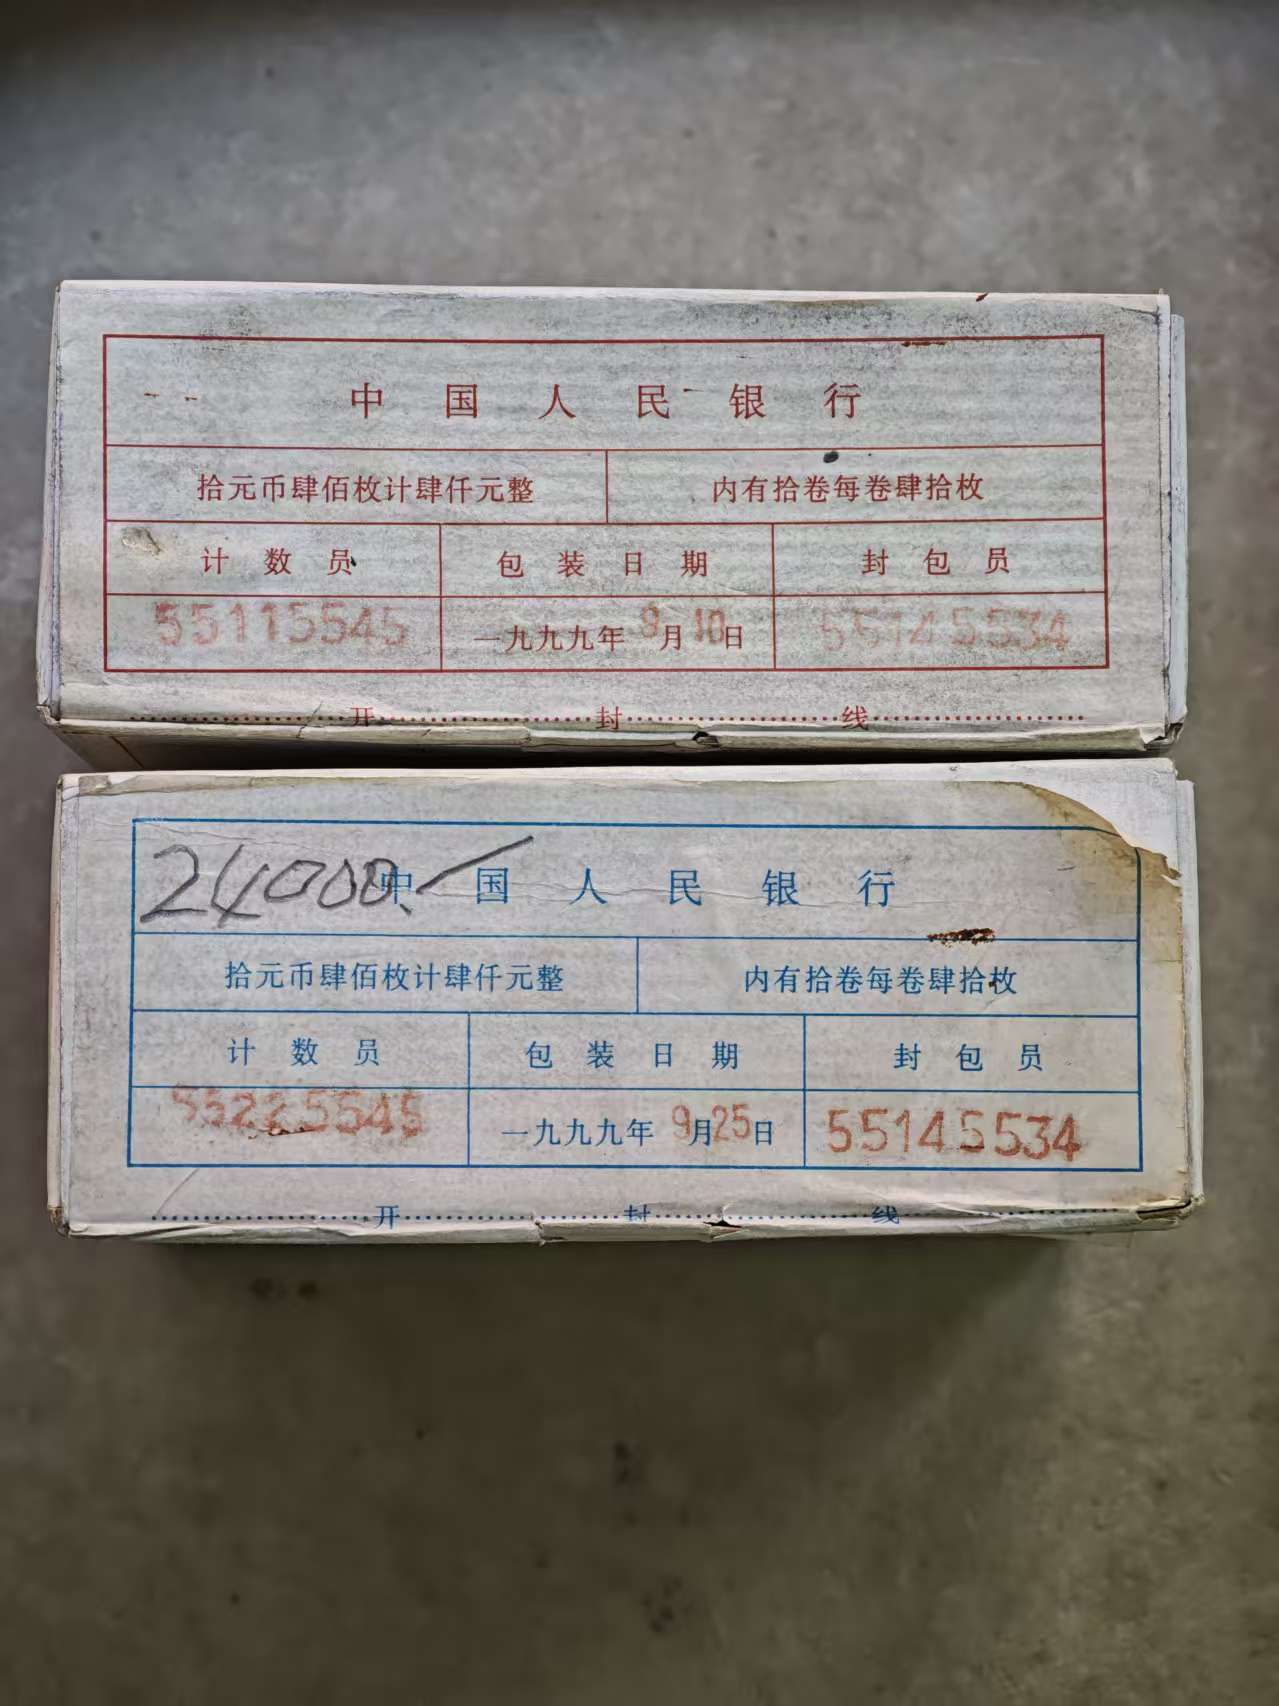 中国人民银行
拾元币肆佰枚计肆仟元整 内有拾卷每卷肆拾枚
计数员 包装日期 封包员
55115545 一九九九年 9月10日 55145534
开封线
24000.
中国人民银行
拾元币肆佰枚计肆仟元整 内有拾卷每卷肆拾枚
计数员 包装日期 封包员
55225545 一九九九年 9月25日 55145534
开封线